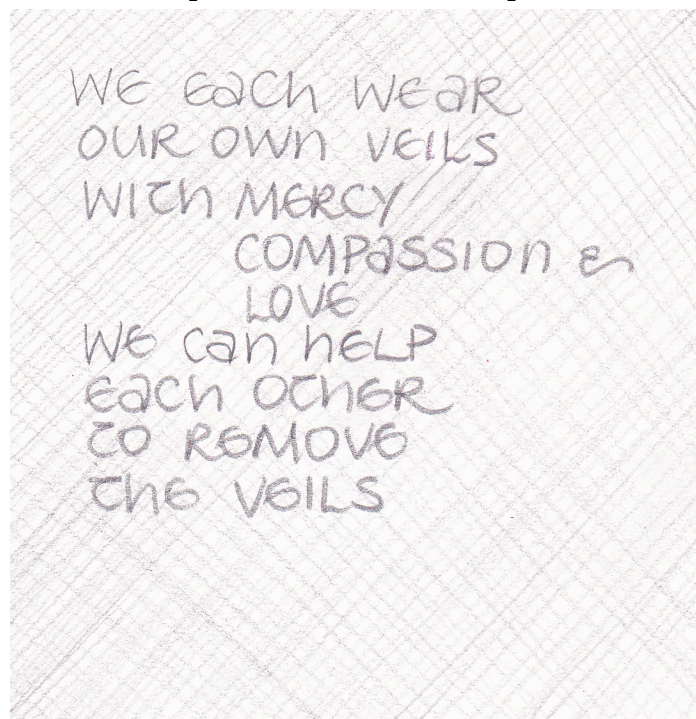 WE EaCh WEaR
OUR OWn VEILS
WITh MERCY
COMPaSSIOn &
LOVE
WE Can hELP
EaCh OThER
TO REMOVE
ThE VEILS